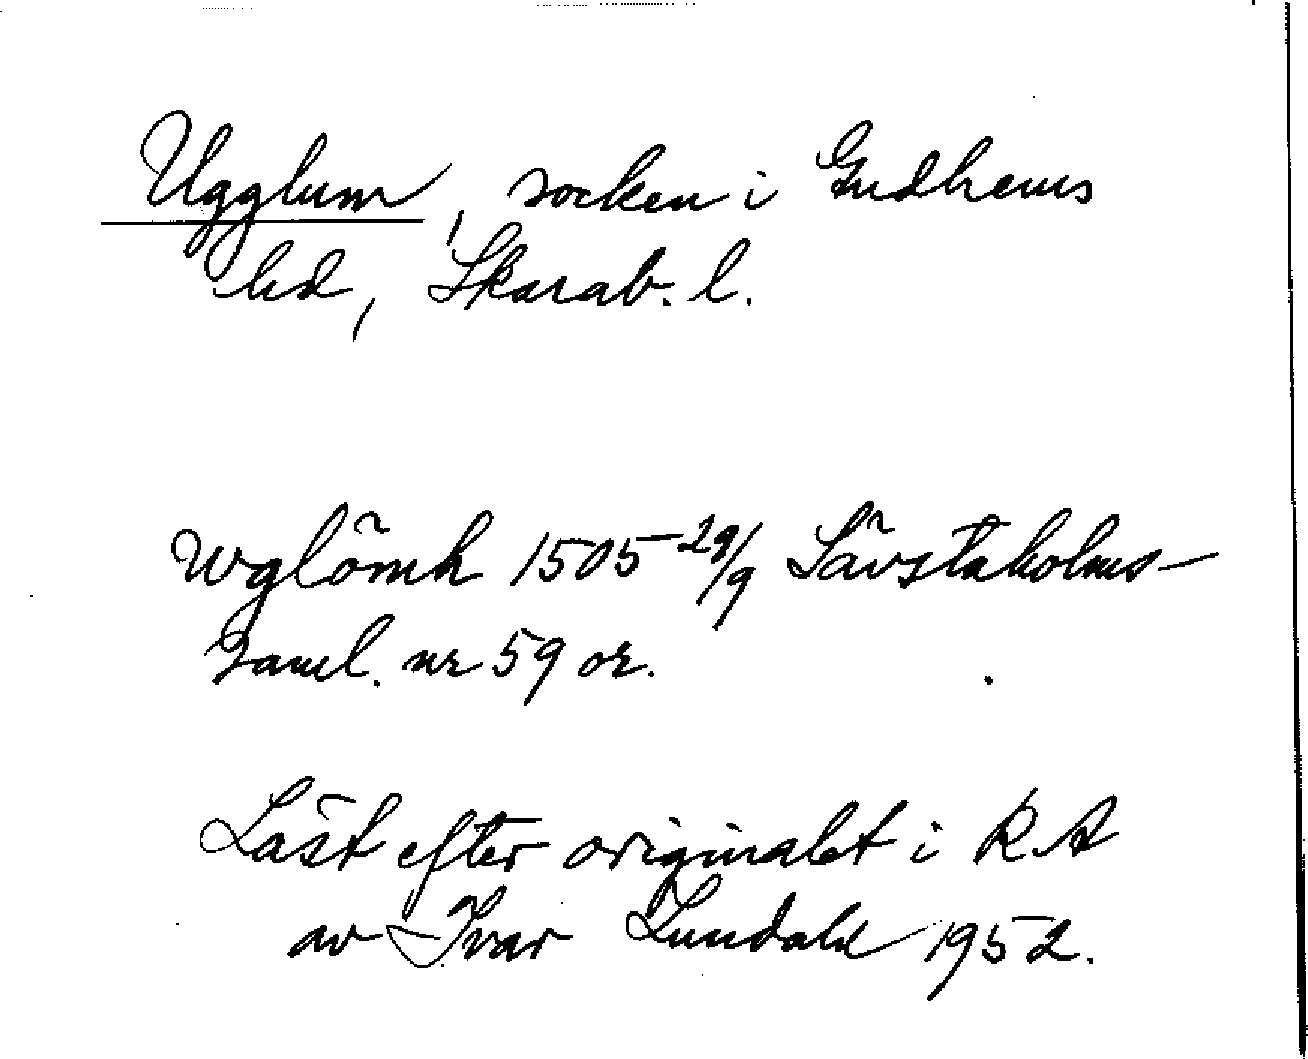 Ugglum, socken i Gudhems
hd, Skarab. l.
Wglömh 1505 29/9 Sävstaholms-
saml. nr 59 or.
Läst efter originalet i RA
av Ivar Lundahl 1952.